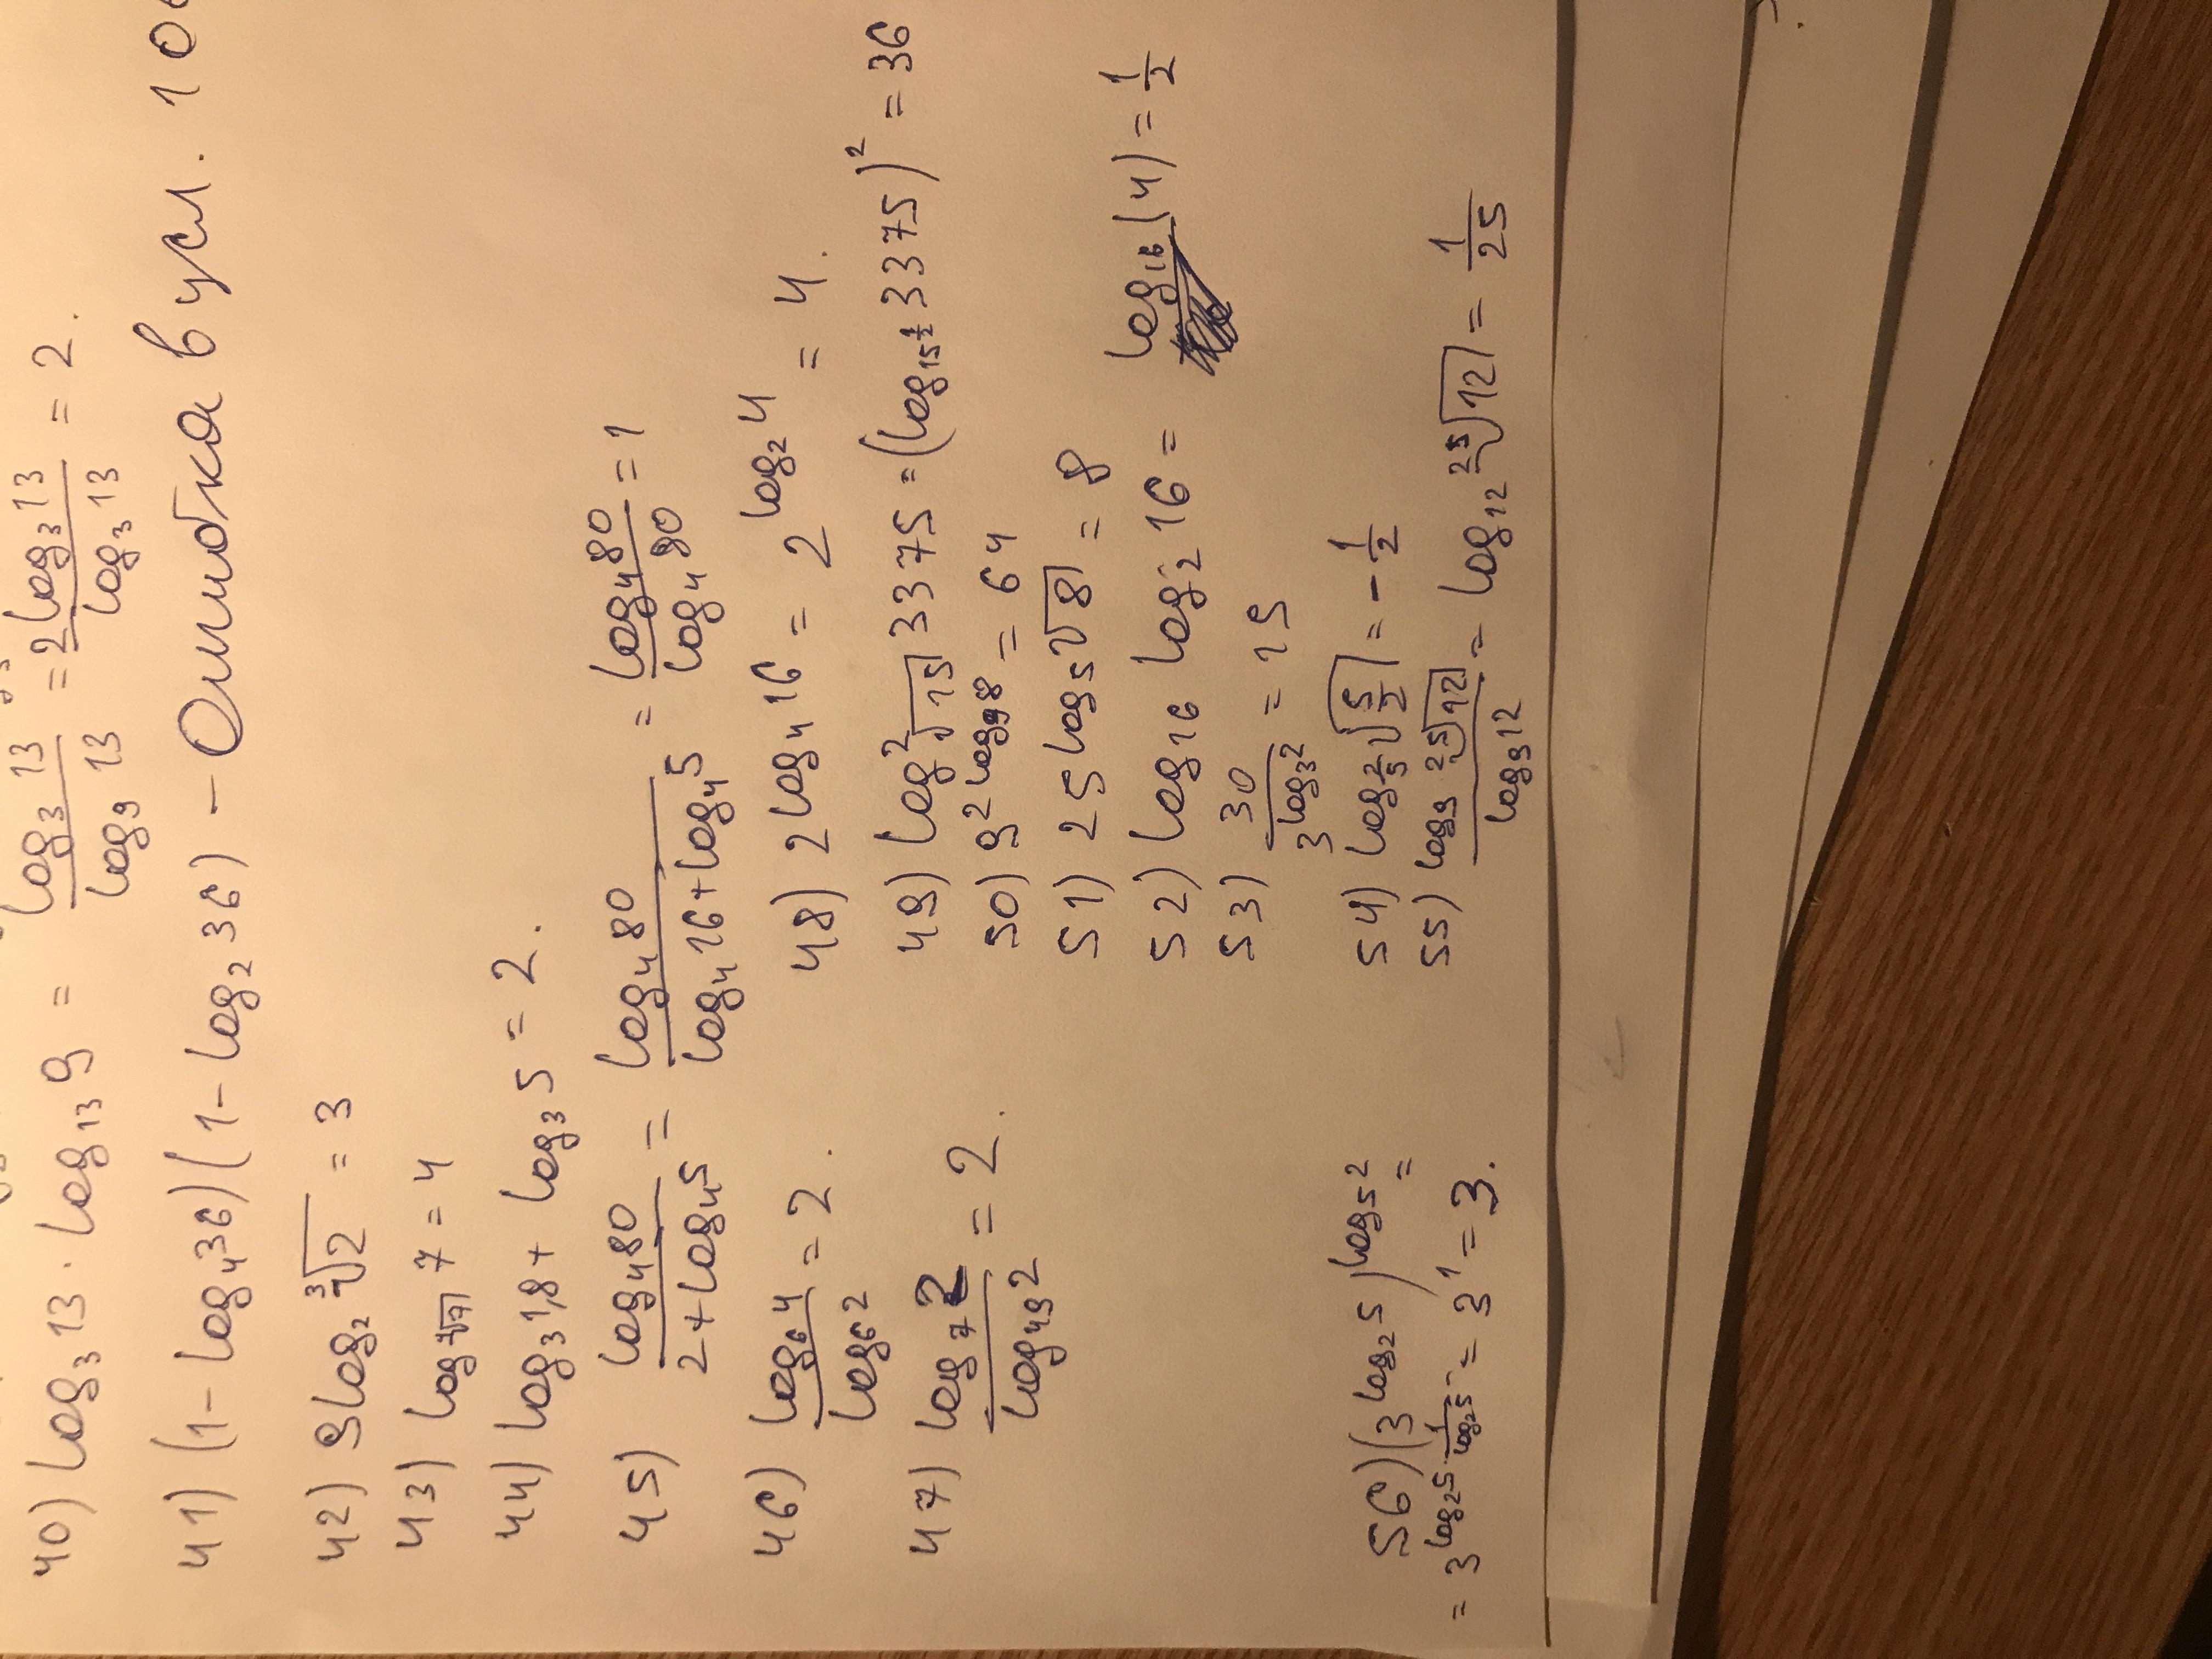 40) log₃13 · log₁₃9 = log₃ 13 / log₉ 13 = 2log₃13 / log₃13 = 2.
41) (1 - log₄36)(1 - log₂36) - Ошибка в усл.
42) 9log₂∛2 = 3
43) log ⁴√7 7 = 4
44) log₃1,8 + log₃5 = 2.
45) log₄80 / 2+log₄5 = log₄80 / log₄16+log₄5 = log₄80 / log₄80 = 1
46) log₆4 / log₆2 = 2.
47) log₇2 / log₄₉2 = 2.
48) 2^log₄16 = 2^log₂4 = 4.
49) log²√15 3375 = (log 15^½ 3375)² = 36
50) 9^2log₉8 = 64
51) 25^log₅√8 = 8
52) log₁₆ log₂16 = log₁₆(4) = 1/2
53) 30 / 3^log₃2 = 15
54) log 2/5 √5/2 = -1/2
55) log₉ ²⁵√12 / log₉12 = log₁₂ ²⁵√12 = 1/25
56) (3^log₂5)^log₅2 =
= 3^log₂5 · 1/log₂5 = 3¹ = 3.